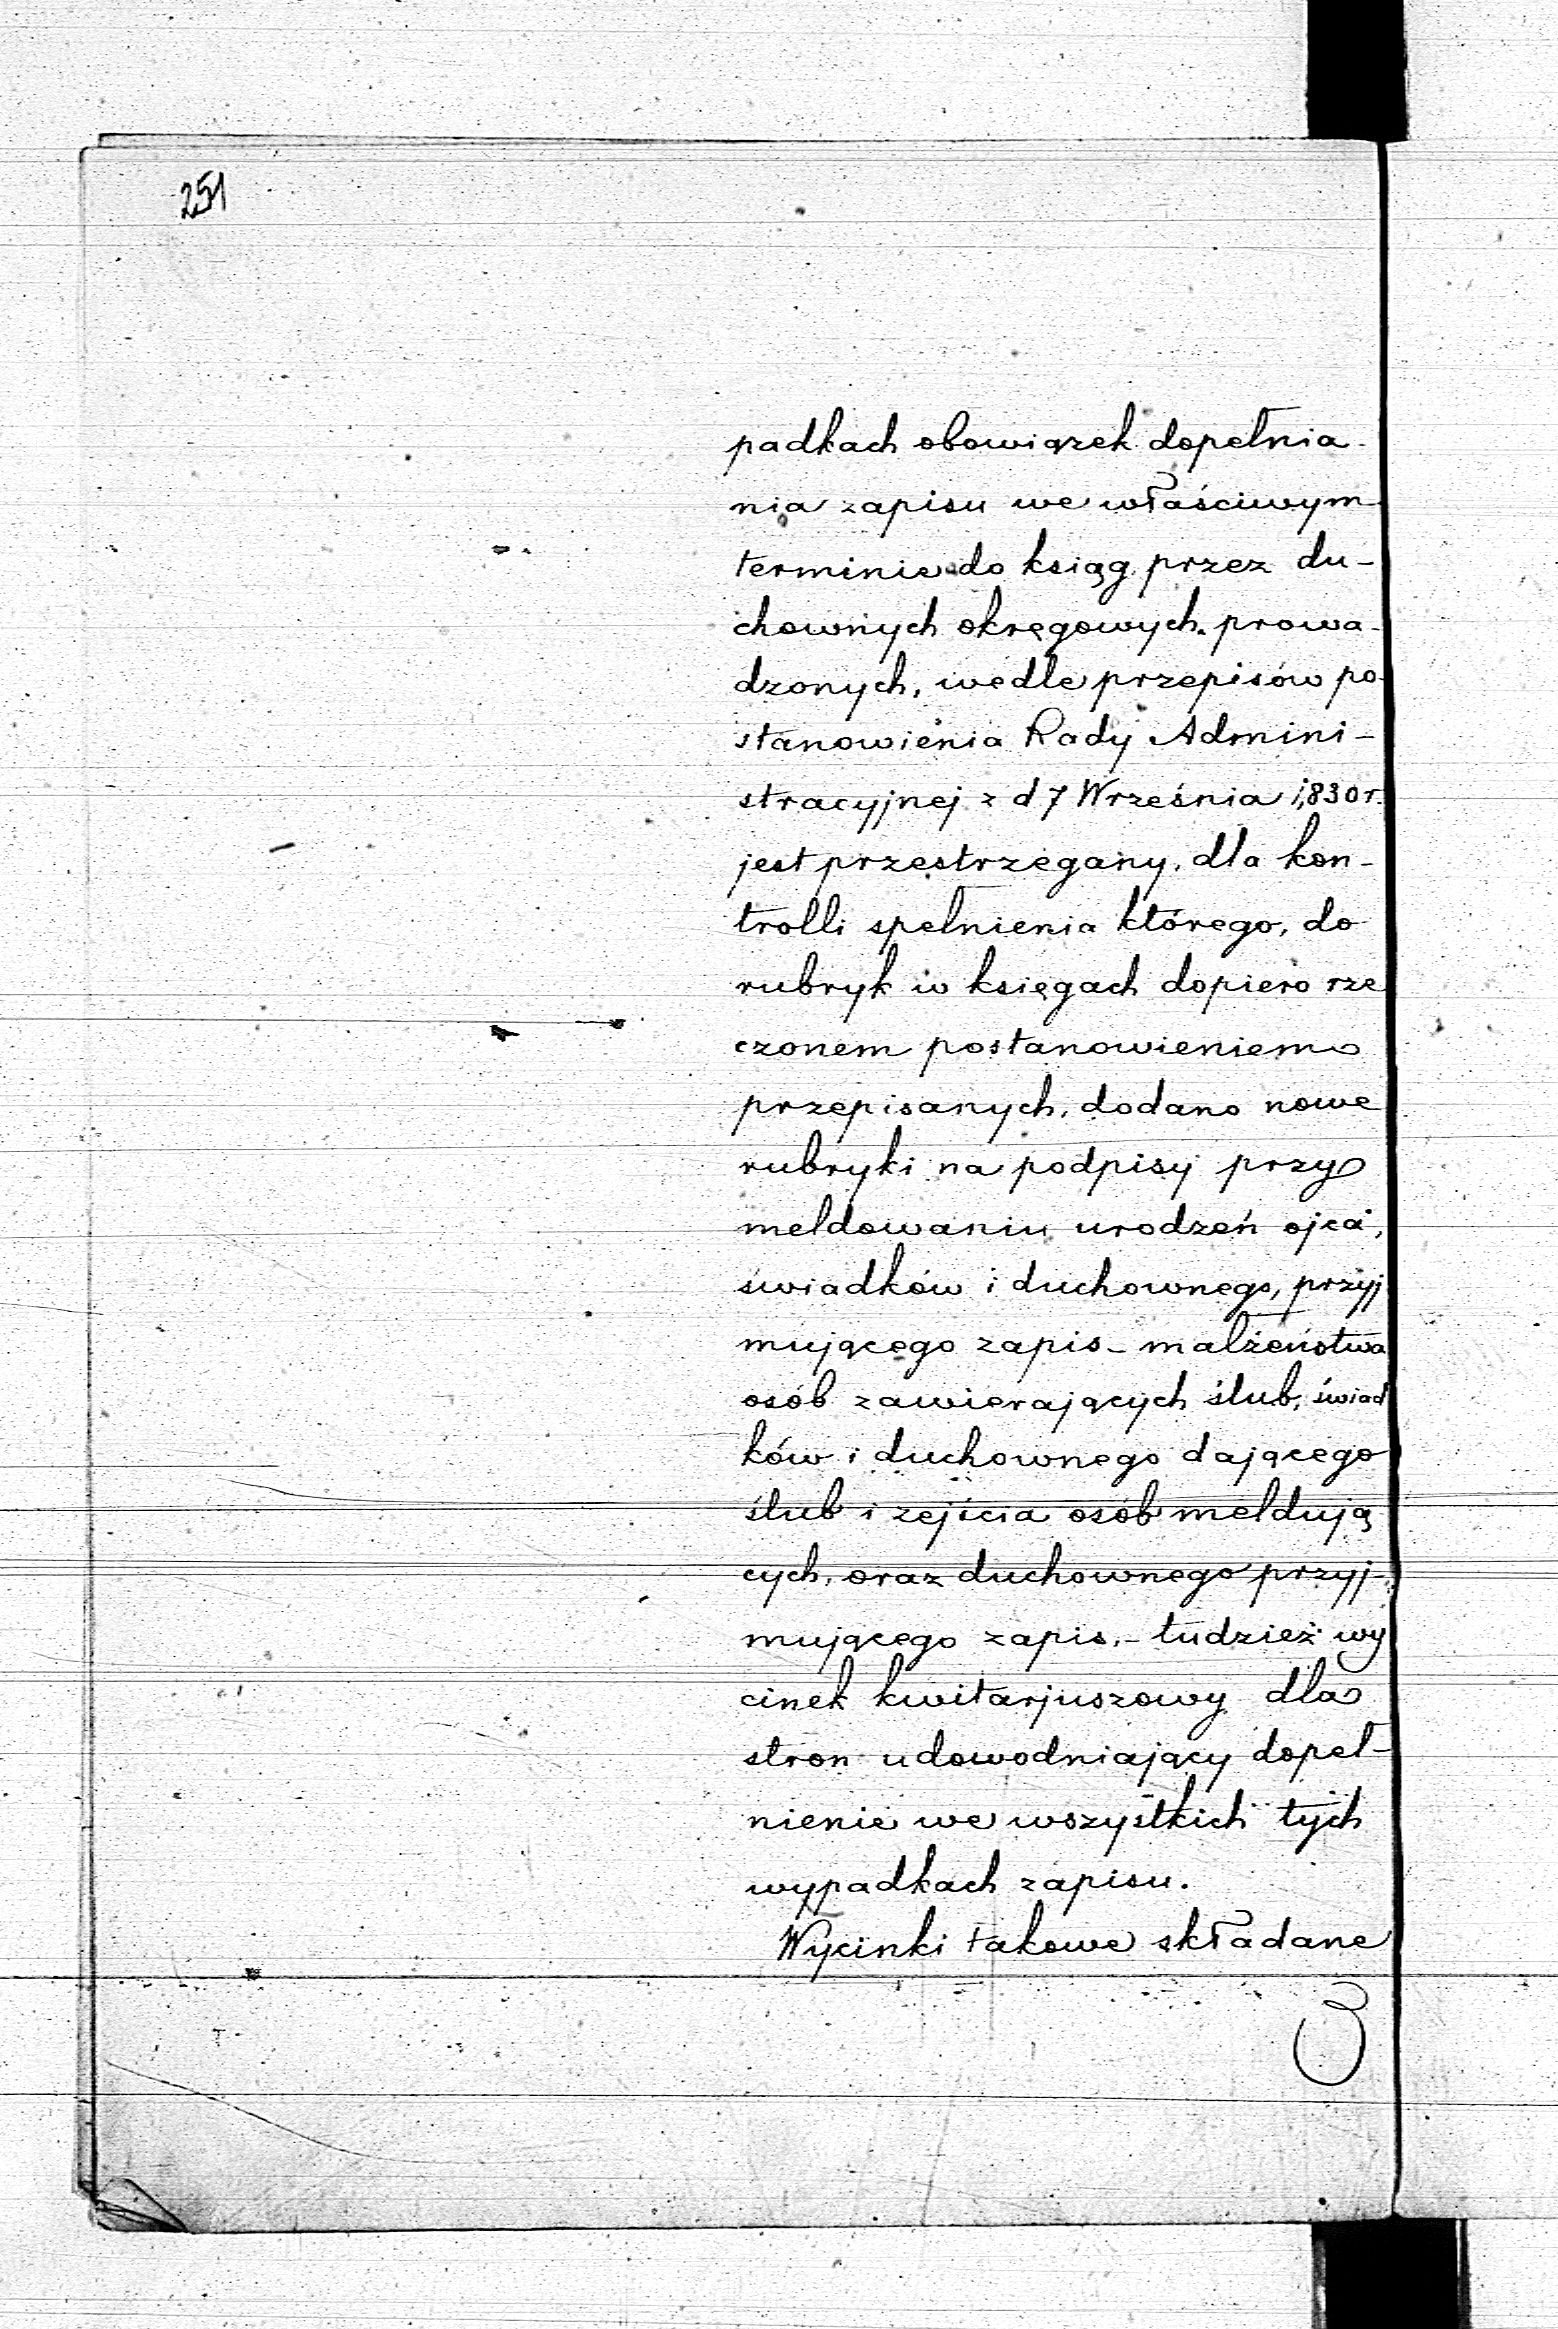 251
padkach obowiązek dopełnia-
nia zapisu we właściwym
terminie do ksiąg przez du-
chownych okręgowych prowa-
dzonych, wedle przepisów po-
stanowienia Rady Admini-
stracyjnej z d 7 Września 1,830 r.
jest przestrzegany, dla kon-
trolli spełnienia którego, do
rubryk w księgach dopiero rze
czonem postanowieniem
przepisanych, dodano nowe
rubryki na podpisy przy
meldowaniu urodzeń ojca,
świadków i duchownego, przyj
mującego zapis - małżeństwa
osób zawierających ślub, świad
ków i duchownego dającego
ślub i zejścia osób meldują
cych, oraz duchownego przyj-
mującego zapis, - tudzież wy
cinek kwitarjuszowy dla
stron udowodniający dopeł-
nienie we wszystkich tych
wypadkach zapisu.
Wycinki takowe składane